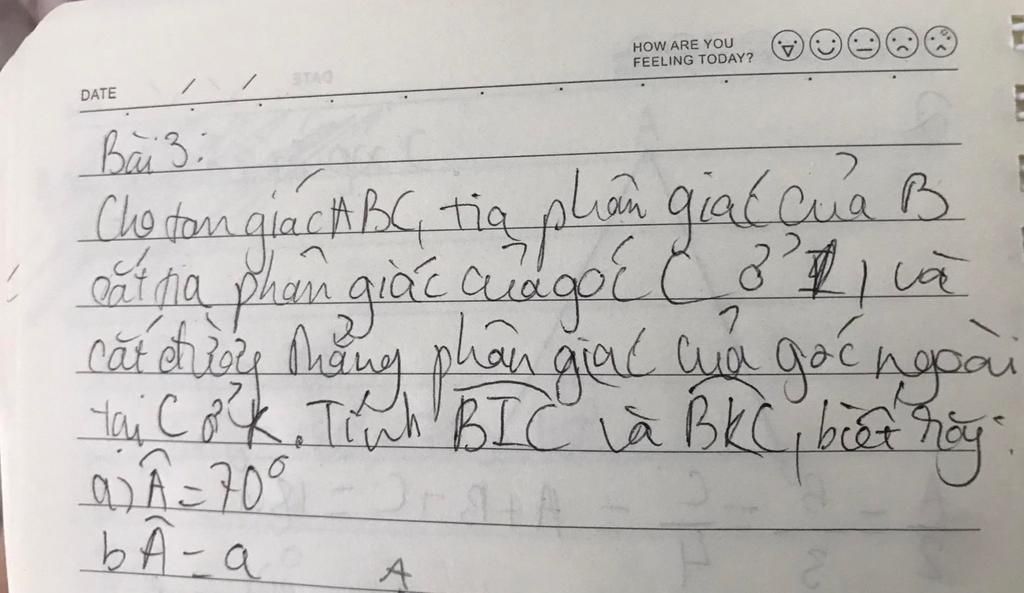 HOW ARE YOU
FEELING TODAY?
DATE / /
Bài 3:
Cho tam giác ABC, tia phân giác của B
cắt tia phân giác của góc C ở I, và
cắt đường thẳng phân giác của góc ngoài
tại C ở K. Tính BIC và BKC, biết rằng:
a) Â = 70°
b Â = a
A